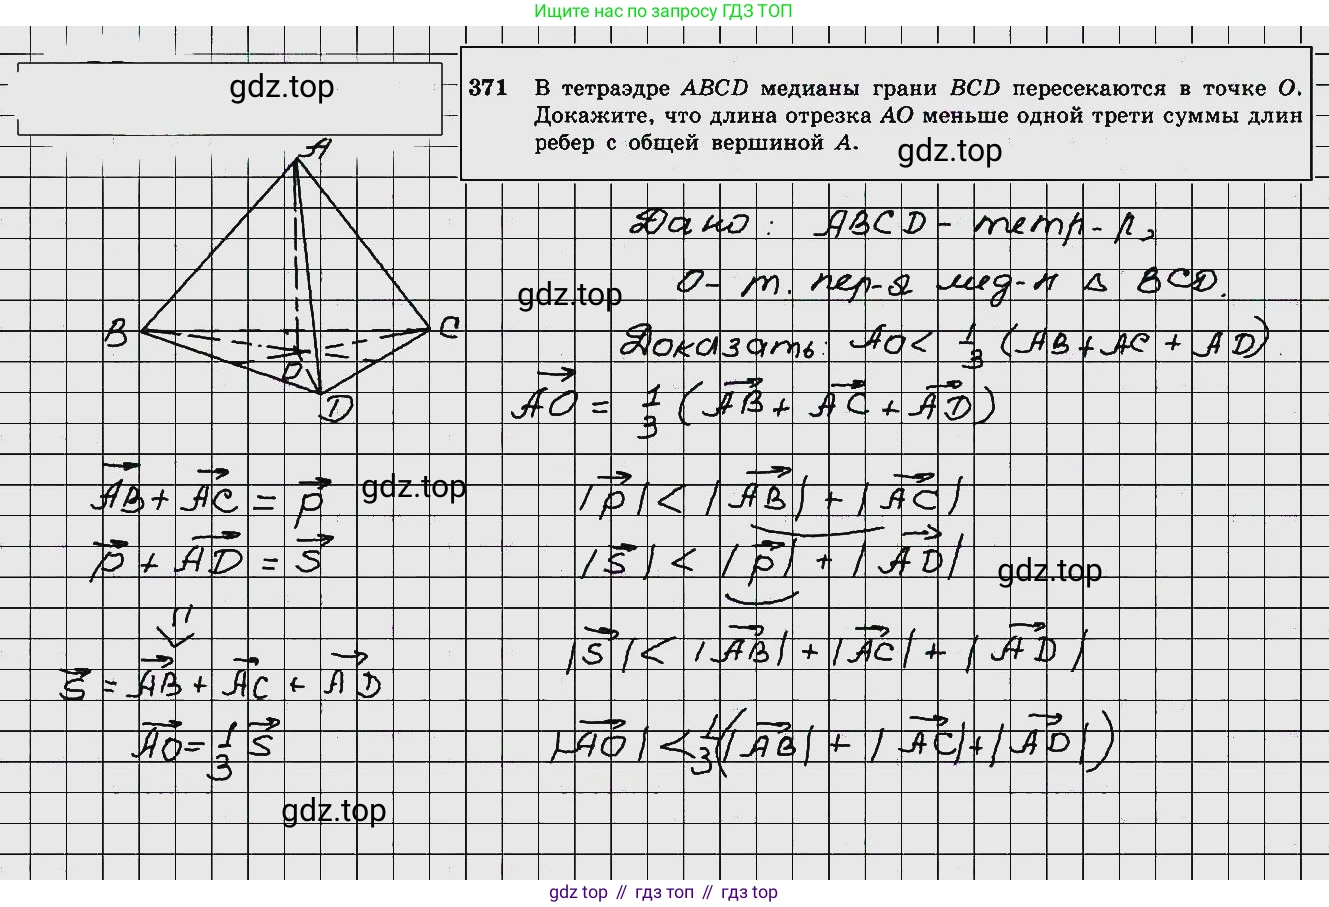 Ищите нас по запросу ГДЗ ТОП
gdz.top
371 В тетраэдре ABCD медианы грани BCD пересекаются в точке O.
Докажите, что длина отрезка AO меньше одной трети суммы длин
ребер с общей вершиной A.
gdz.top
A
B
C
O
D
Дано: ABCD - тетр-р,
gdz.top
O - т. пер-я мед-н Δ BCD.
Доказать: AO < 1/3 (AB + AC + AD)
→AO = 1/3 (→AB + →AC + →AD)
→AB + →AC = →p
gdz.top
|→p| < |→AB| + |→AC|
→p + →AD = →s
|→s| < |→p| + |→AD|
gdz.top
⇓
|→s| < |→AB| + |→AC| + |→AD|
→s = →AB + →AC + →AD
→AO = 1/3 →s
|→AO| < 1/3 (|→AB| + |→AC| + |→AD|)
gdz.top
gdz top // гдз топ // gdz top